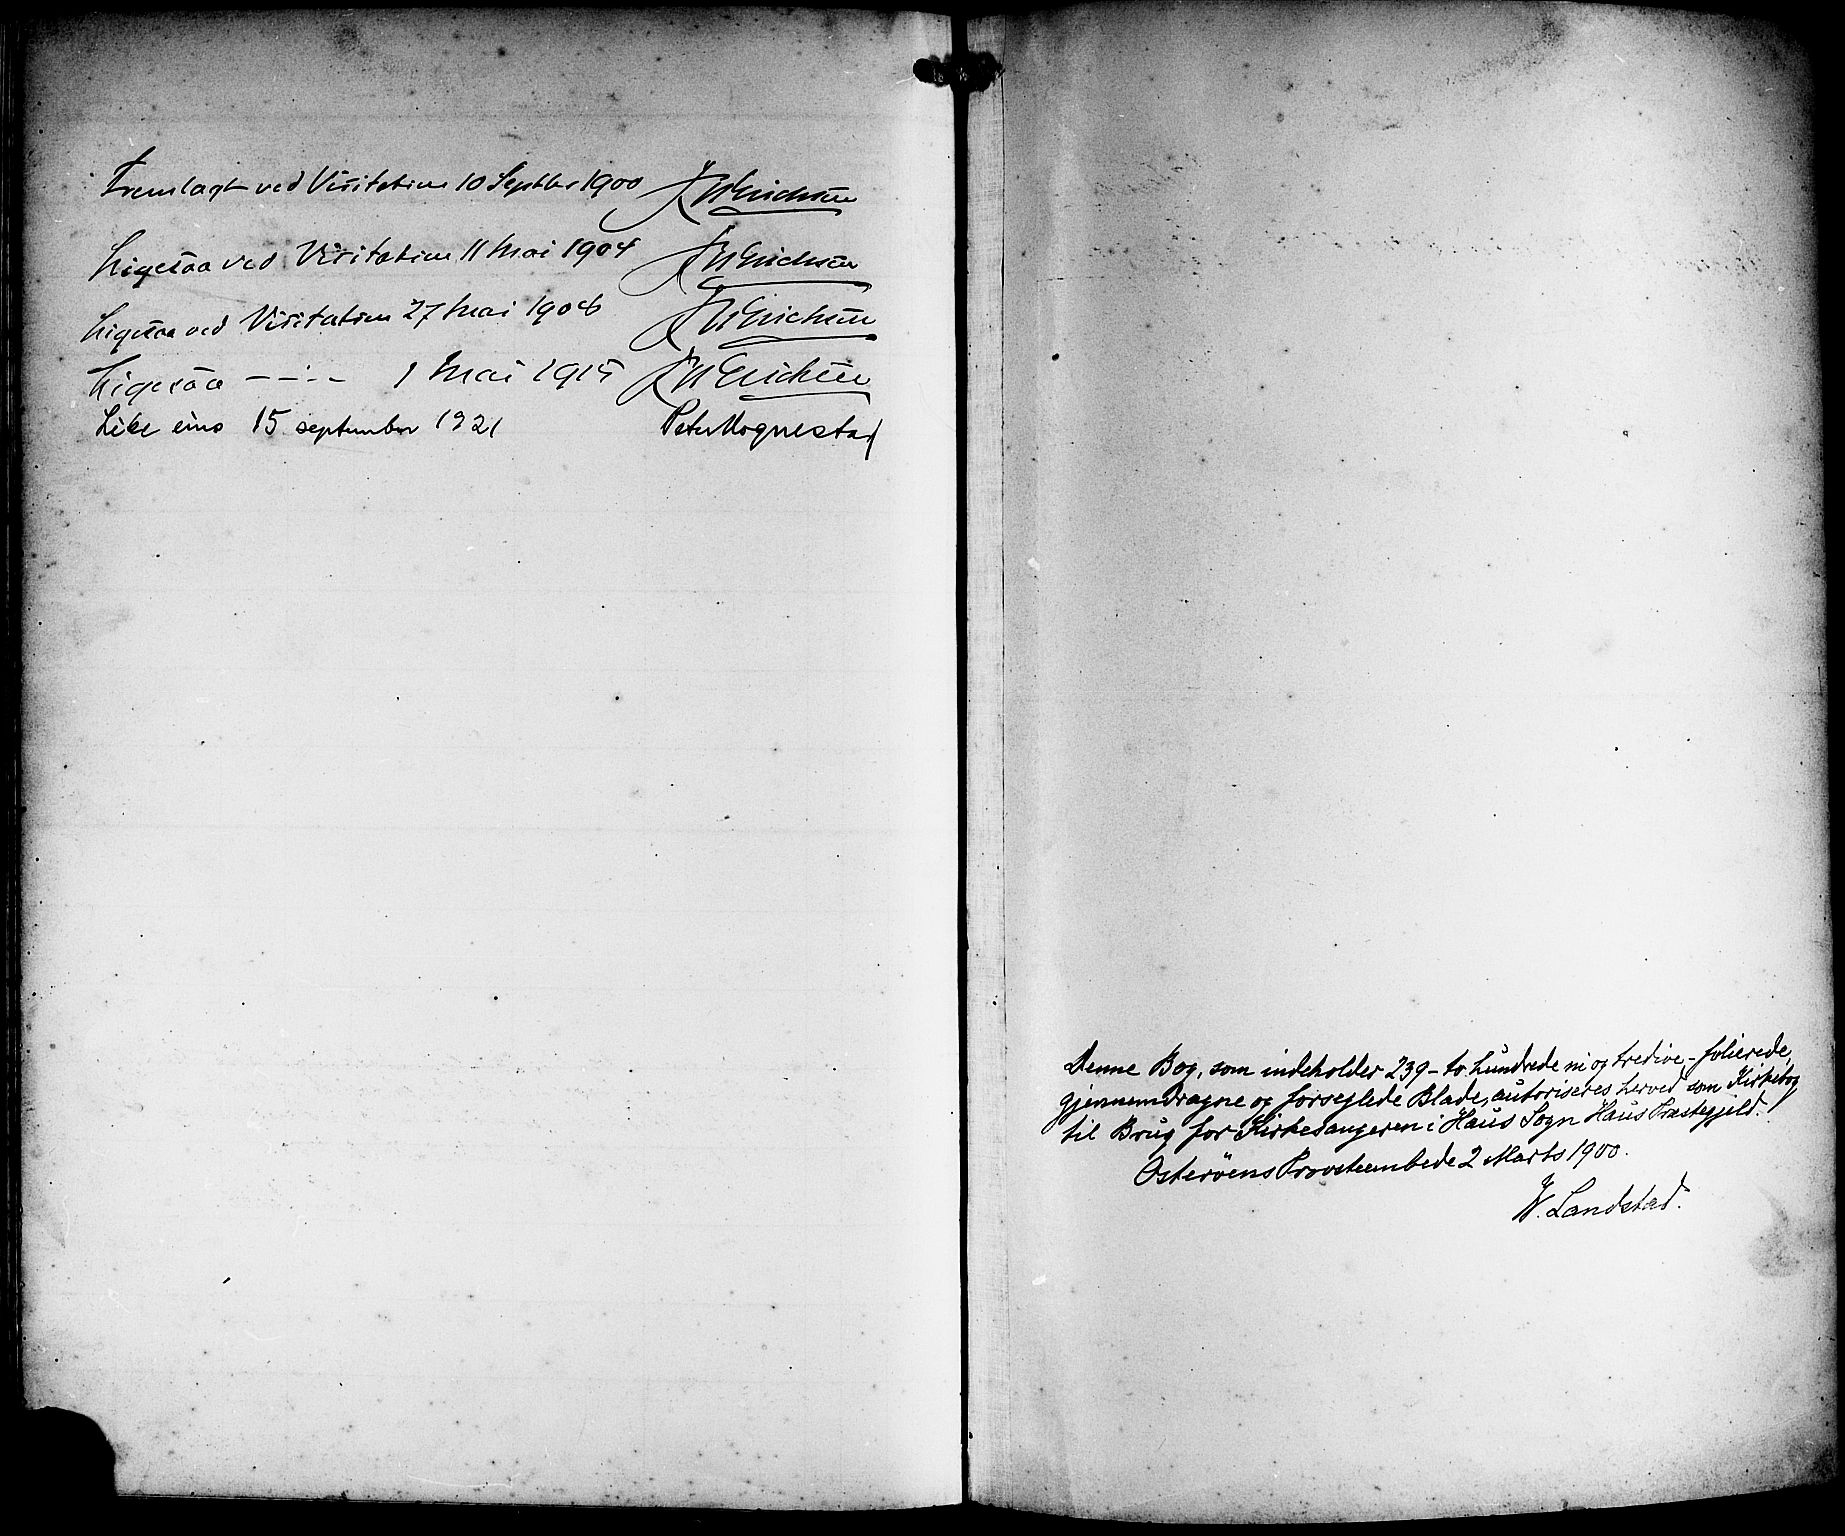 Fremlagt ved Visitation 10 Septbr 1900 JWErichsen
Ligesaa ved Visitation 11 Mai 1904 JWErichsen
Ligesaa ved Visitation 27 Mai 1908 JWErichsen
Ligesaa — — · — 1 Mai 1915 JWErichsen
Like eins 15 september 1921 Peter Hognestad
Denne Bog, som indeholder 239 - to hundrede ni og tredive - folierede,
gjennemdragne og forseglede Blade, autoriseres herved som Kirkebog
til Brug for Kirkesangeren i Haus Sogn Haus Præstegjeld.
Osterøens Provsteembede 2 Marts 1900.
W. Landstad.